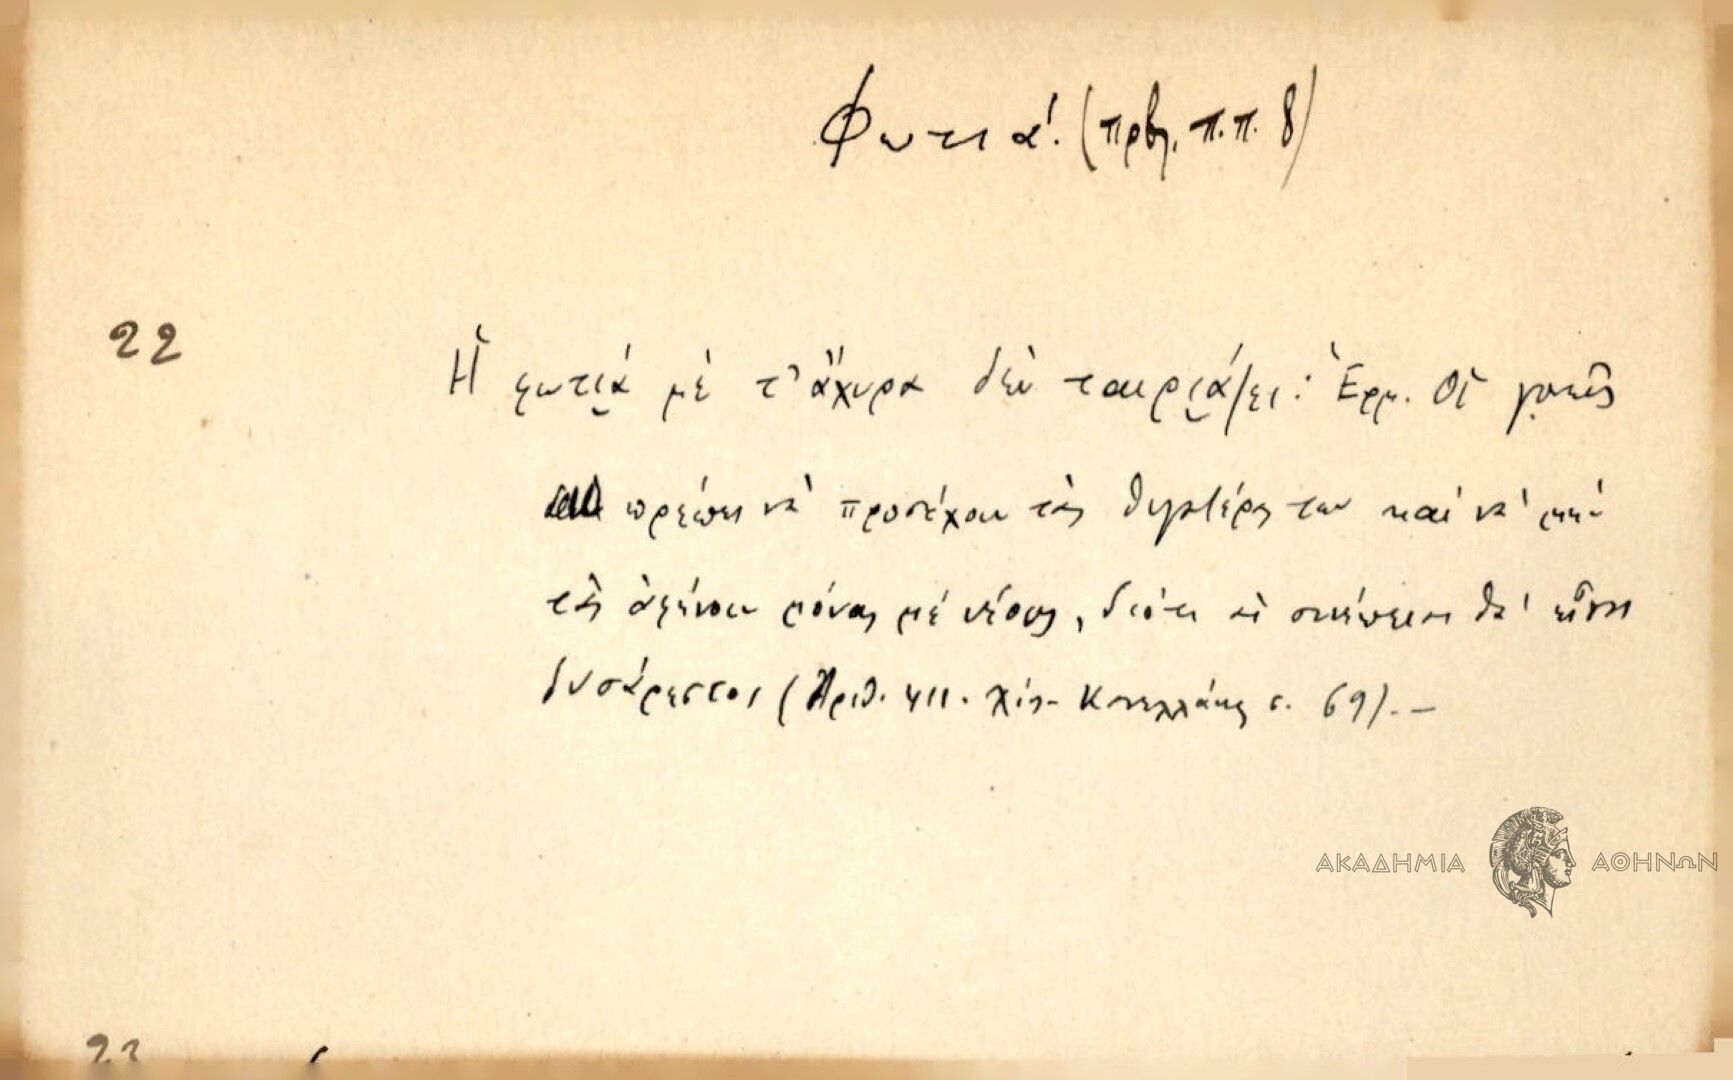 Φωτιά. (πρβλ. π.π. 8)
22
Ἡ φωτιά μὲ τ' ἄχυρα δὲν ταιριάζει: Ἑρμ. Οἱ γονεῖς
πρέπει νὰ προσέχουν τὰς θυγατέρας των καὶ νὰ μὴν
τὰς ἀφήνουν μόνας μὲ νέους, διότι αἱ συνέπειαι θὰ εἶναι
δυσάρεστοι (Ἀριθ. 411. Χίος Κανελλάκης σ. 69).—
ΑΚΑΔΗΜΙΑ ΑΘΗΝΩΝ
23